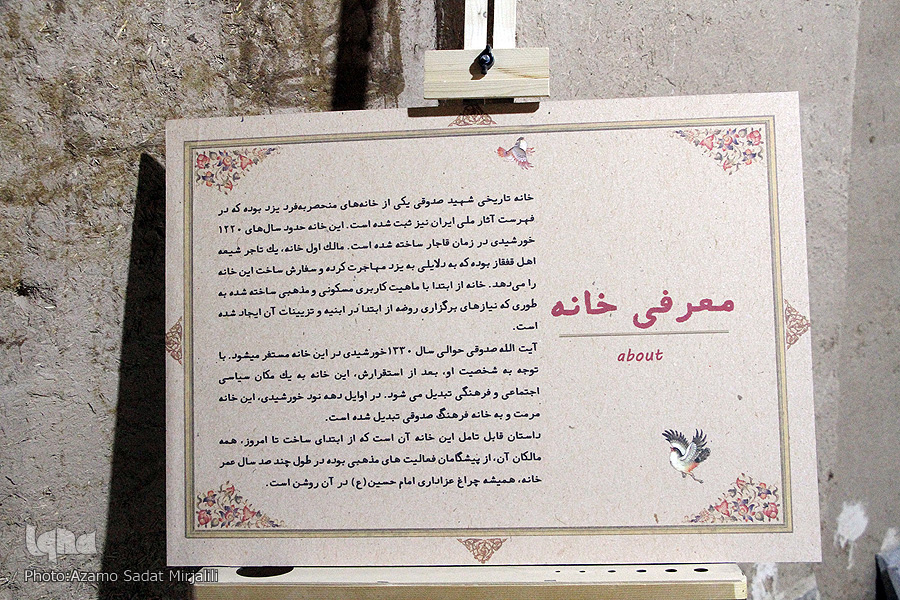 معرفی خانه
about
خانه تاریخی شهید صدوقی یکی از خانه‌های منحصربه‌فرد یزد بوده که در
فهرست آثار ملی ایران نیز ثبت شده است. این خانه حدود سال‌های ۱۲۲۰
خورشیدی در زمان قاجار ساخته شده است. مالک اول خانه، یک تاجر شیعه
اهل قفقاز بوده که به دلایلی به یزد مهاجرت کرده و سفارش ساخت این خانه
را می‌دهد. خانه از ابتدا با ماهیت کاربری مسکونی و مذهبی ساخته شده به
طوری که نیازهای برگزاری روضه از ابتدا در ابنیه و تزیینات آن ایجاد شده
است.
آیت الله صدوقی حوالی سال ۱۳۳۰خورشیدی در این خانه مستقر میشود. با
توجه به شخصیت او، بعد از استقرارش، این خانه به یک مکان سیاسی
اجتماعی و فرهنگی تبدیل می شود. در اوایل دهه نود خورشیدی، این خانه
مرمت و به خانه فرهنگ صدوقی تبدیل شده است.
داستان قابل تامل این خانه آن است که از ابتدای ساخت تا امروز، همه
مالکان آن، از پیشگامان فعالیت های مذهبی بوده در طول چند صد سال عمر
خانه، همیشه چراغ عزاداری امام حسین(ع) در آن روشن است.
Iqna
Photo:Azamo Sadat Mirjalili